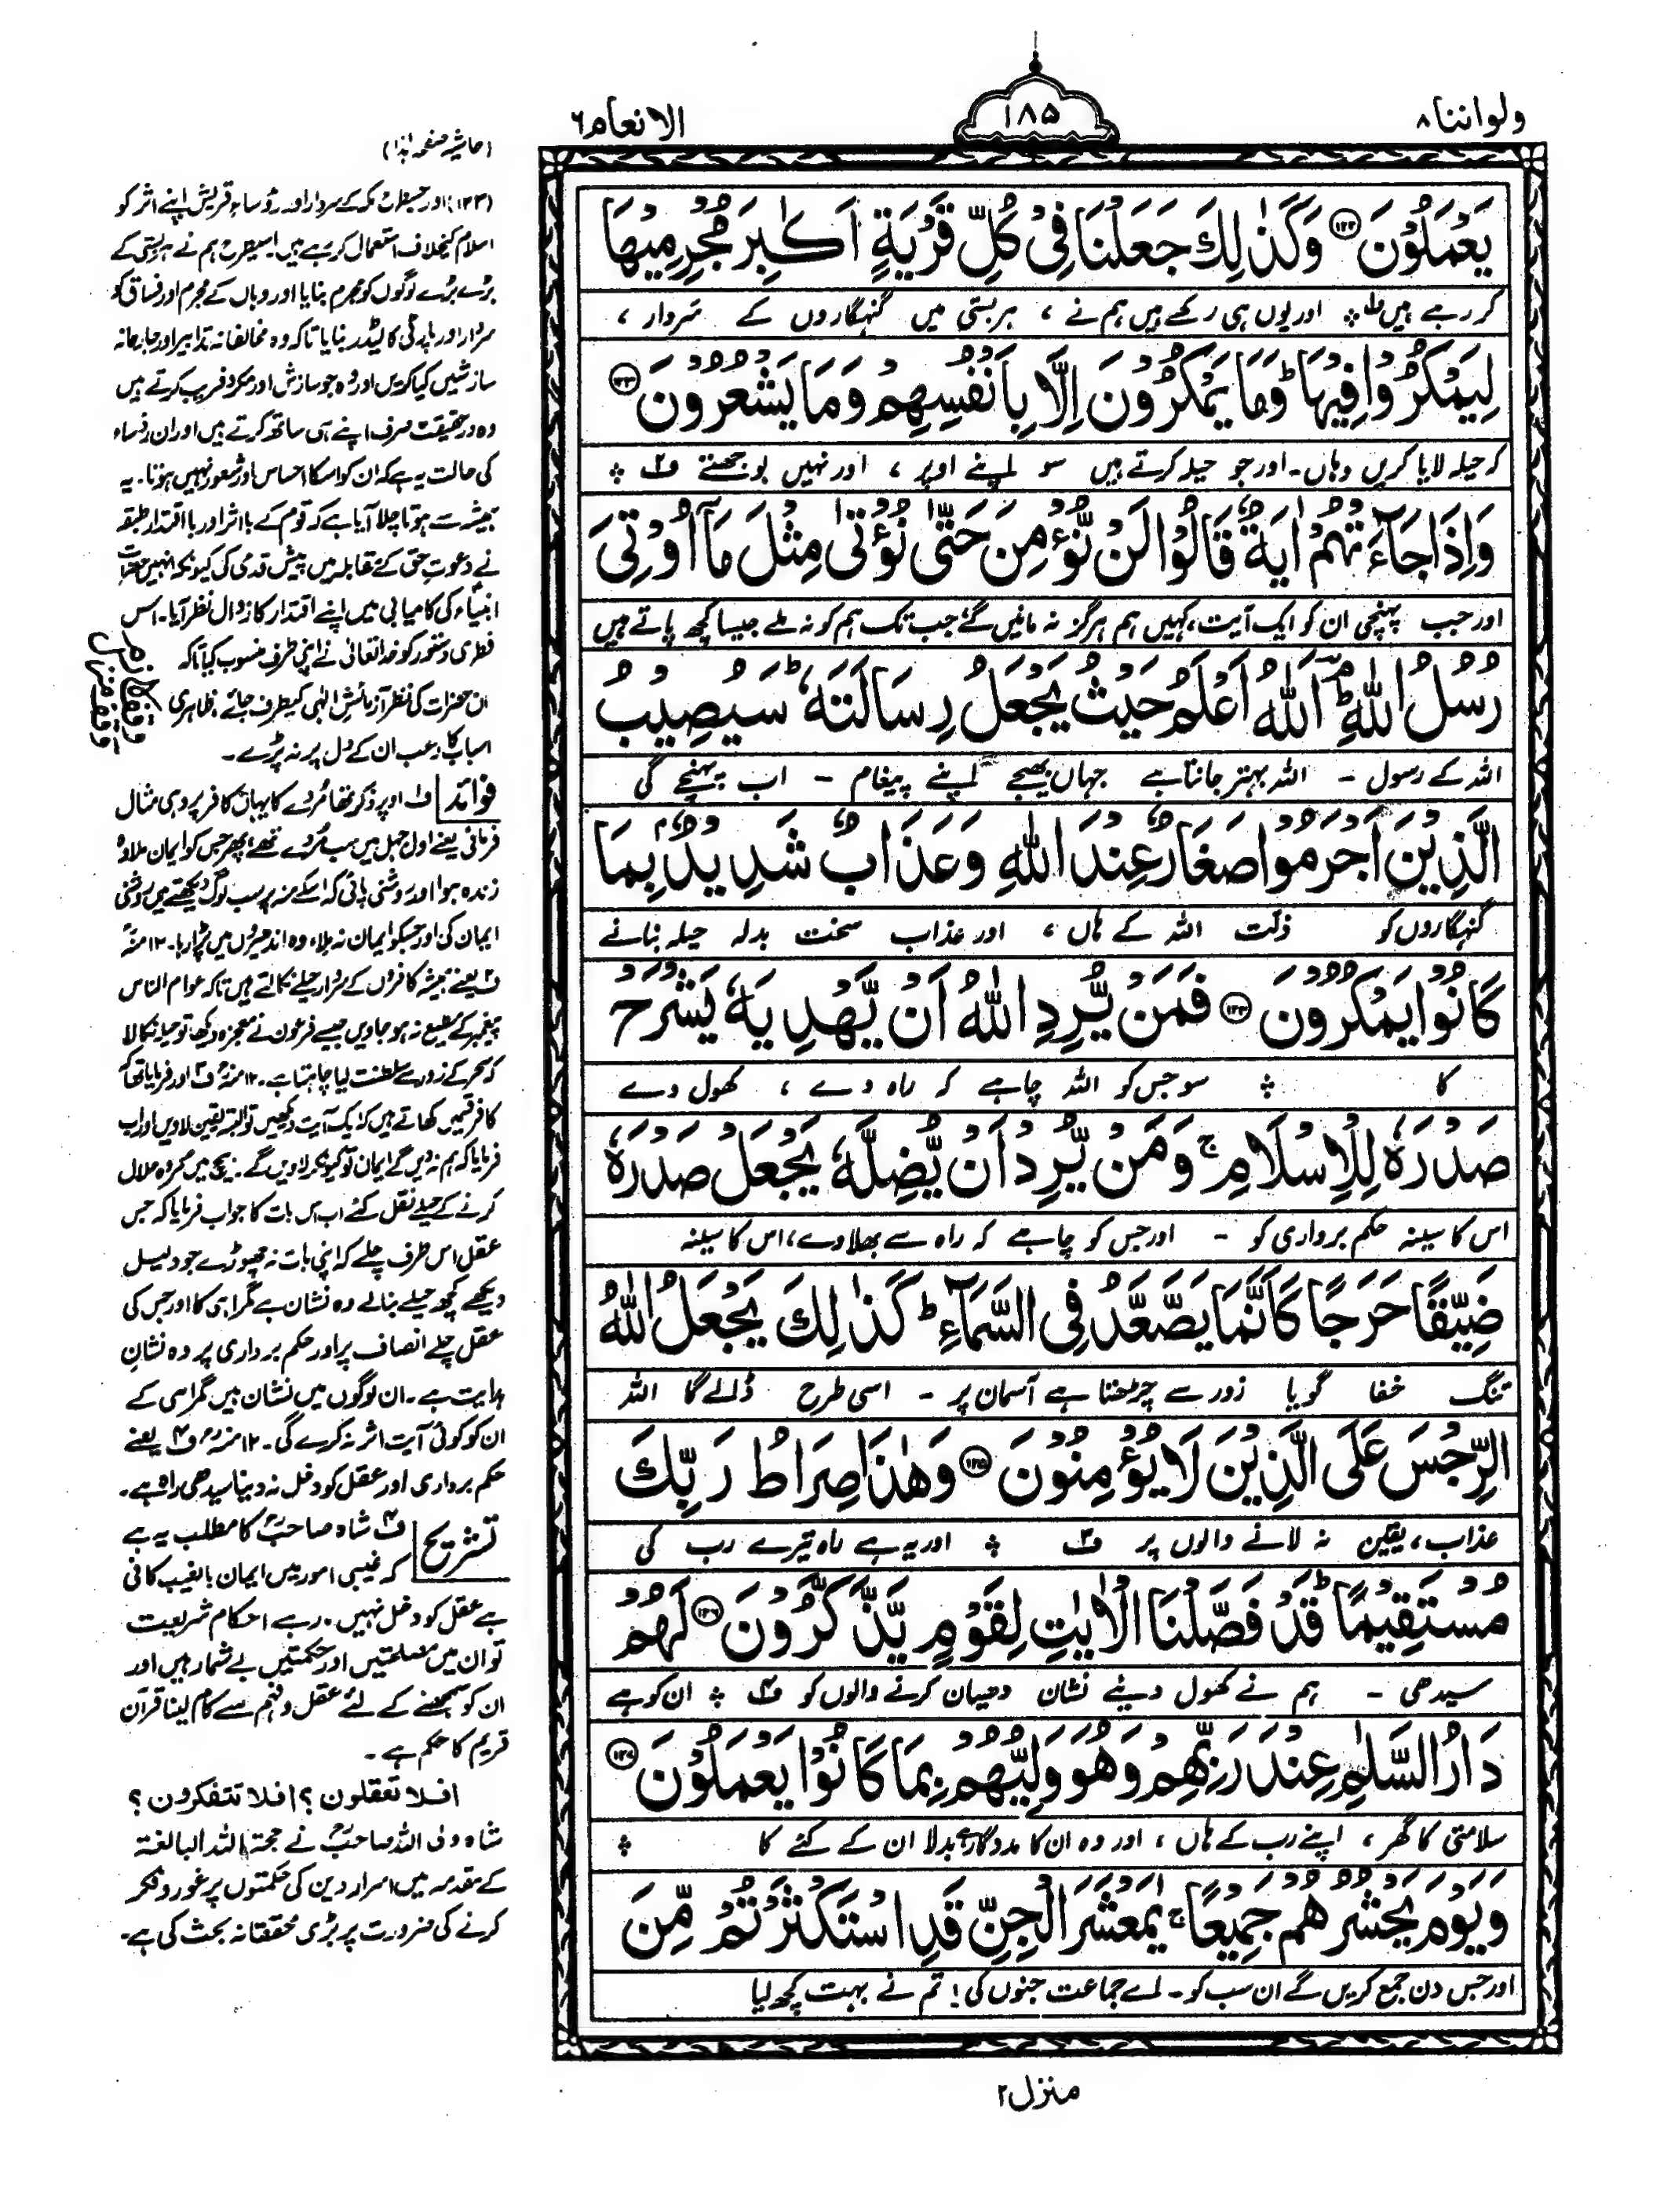 ولواننا ۸
۱۸۵
الانعام ۶
یَعْمَلُوْنَ ﴿۱۲۲﴾ وَکَذٰلِکَ جَعَلْنَا فِیْ کُلِّ قَرْیَةٍ اَکٰبِرَ مُجْرِمِیْهَا
کر رہے ہیں ف۱ ؞ اور یوں ہی رکھے ہیں ہم نے ، ہر بستی میں گنہگاروں کے سردار ،
لِیَمْکُرُوْا فِیْهَا ؕ وَمَا یَمْکُرُوْنَ اِلَّا بِاَنْفُسِهِمْ وَمَا یَشْعُرُوْنَ ﴿۱۲۳﴾
کہ حیلہ لایا کریں وہاں۔ اور جو حیلہ کرتے ہیں سو اپنے اوپر ، اور نہیں بوجھتے ف۲ ؞
وَاِذَا جَآءَتْهُمْ اٰیَةٌ قَالُوْا لَنْ نُّؤْمِنَ حَتّٰی نُؤْتٰی مِثْلَ مَآ اُوْتِیَ
اور جب پہنچی ان کو ایک آیت، کہیں ہم ہرگز نہ مانیں گے جب تک ہم کو نہ ملے جیسا کچھ پاتے ہیں
رُسُلُ اللّٰهِ ؔؕ اَللّٰهُ اَعْلَمُ حَیْثُ یَجْعَلُ رِسَالَتَهٗ ؕ سَیُصِیْبُ
اللہ کے رسول ۔ اللہ بہتر جانتا ہے جہاں بھیجے اپنے پیغام ۔ اب پہنچے گی
الَّذِیْنَ اَجْرَمُوْا صَغَارٌ عِنْدَ اللّٰهِ وَعَذَابٌ شَدِیْدٌۢ بِمَا
گنہگاروں کو ذلت اللہ کے ہاں ، اور عذاب سخت بدلہ حیلہ بنانے
کَانُوْا یَمْکُرُوْنَ ﴿۱۲۴﴾ فَمَنْ یُّرِدِ اللّٰهُ اَنْ یَّهْدِیَهٗ یَشْرَحْ
کا ؞ سو جس کو اللہ چاہے کہ راہ دے ، کھول دے
صَدْرَهٗ لِلْاِسْلَامِ ۚ وَمَنْ یُّرِدْ اَنْ یُّضِلَّهٗ یَجْعَلْ صَدْرَهٗ
اس کا سینہ حکم برداری کو ۔ اور جس کو چاہے کہ راہ سے بھلا دے، اس کا سینہ
ضَیِّقًا حَرَجًا کَاَنَّمَا یَصَّعَّدُ فِی السَّمَآءِ ؕ کَذٰلِکَ یَجْعَلُ اللّٰهُ
تنگ خفا گویا زور سے چڑھتا ہے آسمان پر ۔ اسی طرح ڈالے گا اللہ
الرِّجْسَ عَلَی الَّذِیْنَ لَا یُؤْمِنُوْنَ ﴿۱۲۵﴾ وَهٰذَا صِرَاطُ رَبِّکَ
عذاب، یقین نہ لانے والوں پر ف۳ ؞ اور یہ ہے راہ تیرے رب کی
مُسْتَقِیْمًا ؕ قَدْ فَصَّلْنَا الْاٰیٰتِ لِقَوْمٍ یَّذَّکَّرُوْنَ ﴿۱۲۶﴾ لَهُمْ
سیدھی ۔ ہم نے کھول دیئے نشان دھیان کرنے والوں کو ف۴ ؞ ان کو ہے
دَارُ السَّلٰمِ عِنْدَ رَبِّهِمْ وَهُوَ وَلِیُّهُمْ بِمَا کَانُوْا یَعْمَلُوْنَ ﴿۱۲۷﴾
سلامتی کا گھر ، اپنے رب کے ہاں ، اور وہ ان کا مددگار ہے بدلا ان کے کئے کا ؞
وَیَوْمَ یَحْشُرُهُمْ جَمِیْعًا ۚ یٰمَعْشَرَ الْجِنِّ قَدِ اسْتَکْثَرْتُمْ مِّنَ
اور جس دن جمع کریں گے ان سب کو۔ اے جماعت جنوں کی! تم نے بہت کچھ لیا
منزل ۲
(حاشیہ صفحہ ہٰذا)
(۱۲۳) اور جسطرح مکہ کے سردار اور رؤساءِ قریش اپنے اثر کو
اسلام کیخلاف استعمال کر رہے ہیں۔ اسیطرح ہم نے ہر بستی کے
بڑے بڑے لوگوں کو مجرم بنایا اور وہاں کے مجرم اور فساق کو
سردار اور پارٹی کا لیڈر بنایا تاکہ وہ مخالفانہ تدابیر اور جابرانہ
سازشیں کیا کریں اور وہ جو سازش اور مکر و فریب کرتے ہیں
وہ درحقیقت صرف اپنے ہی ساتھ کرتے ہیں اور ان رؤساء
کی حالت یہ ہے کہ ان کو اسکا احساس اور شعور نہیں ہوتا۔ یہ
ہمیشہ سے ہوتا چلا آیا ہے کہ قوم کے بااثر اور بااقتدار طبقہ
نے دعوتِ حق کے مقابلہ میں پیش قدمی کی کیونکہ انہیں حضرات
انبیاء کی کامیابی میں اپنے اقتدار کا زوال نظر آیا۔ اس
فطری دستور کو خدا تعالیٰ نے اپنی طرف منسوب کیا تاکہ
ان حضرات کی نظر آزمائشِ الٰہی کیطرف جائے، ظاہری
اسباب کا رعب ان کے دل پر نہ پڑے۔
وقف لازم
وقف منزل
فوائد ف۱ اوپر ذکر تھا مُردے کا یہاں کافر پر وہی مثال
فرمائی یعنے اول جہل میں سب مُردے تھے پھر جس کو ایمان ملا وہ
زندہ ہوا اور روشنی پائی کہ اسکے منہ پر سب لوگ دیکھتے ہیں روشنی
ایمان کی اور جسکو ایمان نہ ملا، وہ اندھیروں میں پڑا رہا۔ ۱۲ منہؒ
ف۲ یعنے ہمیشہ کافروں کے سردار حیلے نکالتے ہیں تاکہ عوام الناس
پیغمبر کے مطیع نہ ہو جاویں جیسے فرعون نے معجزہ دیکھا تو حیلہ نکالا
کہ سحر کے زور سے سلطنت لیا چاہتا ہے۔ ۱۲ منہؒ ف۳ اور فرمایا تھا کہ
کافر قسمیں کھاتے ہیں کہ ایک آیت دیکھیں تو البتہ یقین لاویں اور اب
فرمایا کہ ہم نہ دیں گے ایمان تو کیونکر لاویں گے۔ بیچ میں مردہ حلال
کرنے کے حیلے نقل کئے اب اس بات کا جواب فرمایا کہ جس
عقل اس طرف چلے کہ اپنی بات نہ چھوڑے جو دلیل
دیکھے کچھ حیلے بنالے وہ نشان ہے گمراہی کا اور جس کی
عقل چلے انصاف پر اور حکم برداری پر وہ نشان
ہدایت ہے۔ ان لوگوں میں نشان ہیں گمراہی کے
ان کو کوئی آیت اثر نہ کرے گی۔ ۱۲ منہؒ ف۴ یعنے
حکم برداری اور عقل کو دخل نہ دینا سیدھی راہ ہے۔
تشریح ف۴ شاہ صاحبؒ کا مطلب یہ ہے
کہ غیبی امور میں ایمان بالغیب کافی
ہے عقل کو دخل نہیں۔ رہے احکام شریعت
تو ان میں مصلحتیں اور حکمتیں بے شمار ہیں اور
ان کو سمجھنے کے لئے عقل و فہم سے کام لینا قرآن
کریم کا حکم ہے۔
افلا تعقلون؟ افلا تتفکرون؟
شاہ ولی اللہ صاحبؒ نے حجۃ اللہ البالغۃ
کے مقدمہ میں اسرارِ دین کی حکمتوں پر غور و فکر
کرنے کی ضرورت پر بڑی محققانہ بحث کی ہے۔